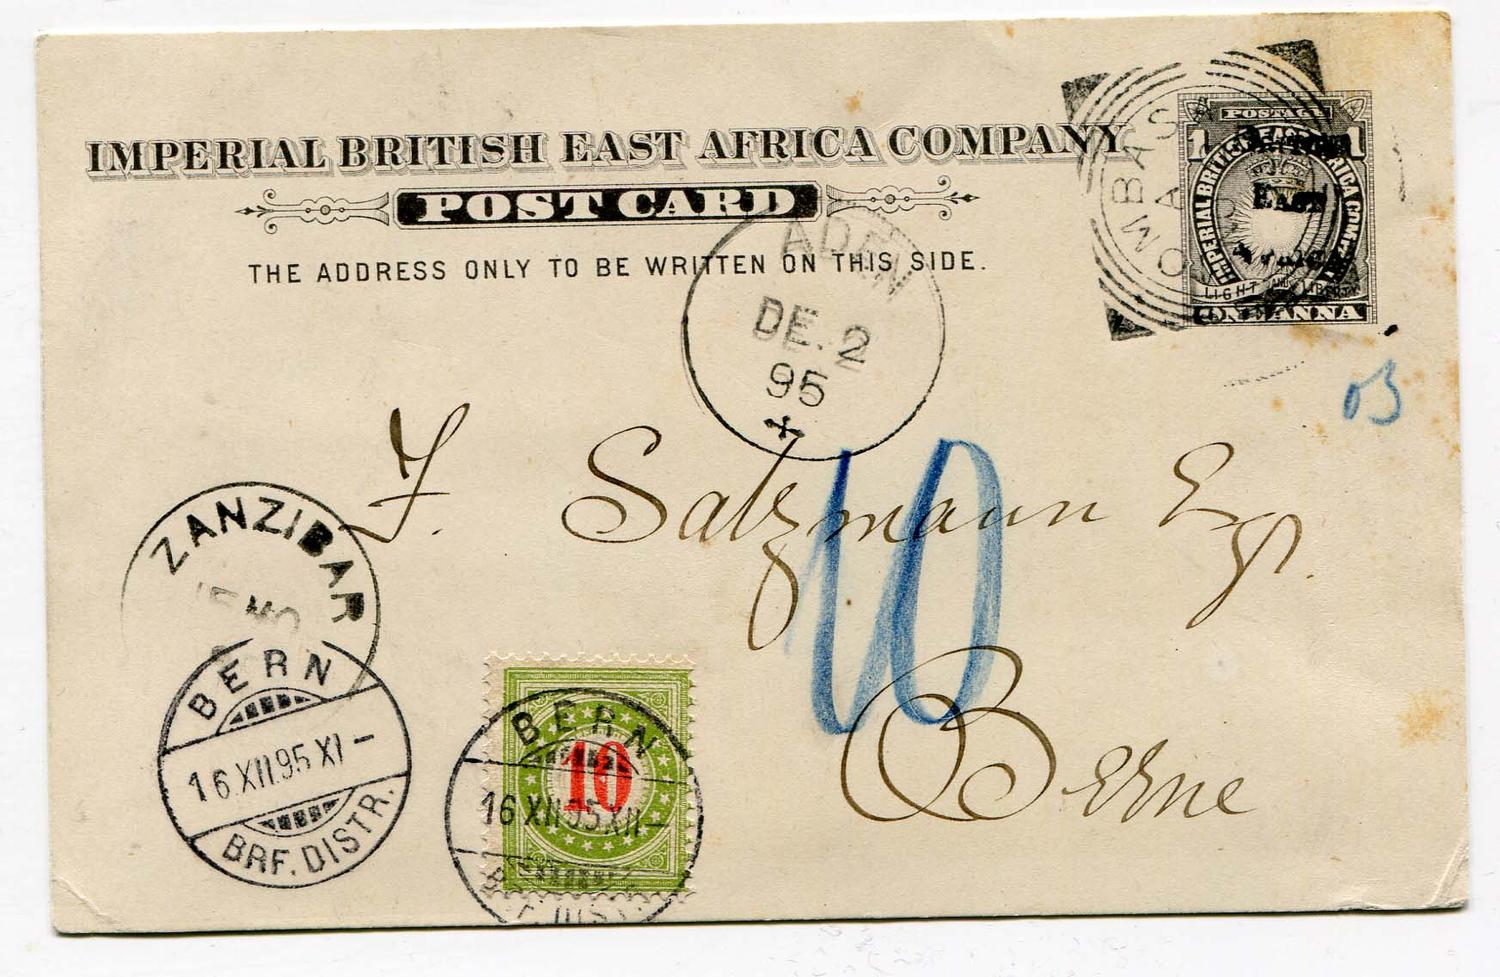 IMPERIAL BRITISH EAST AFRICA COMPANY
POST CARD
THE ADDRESS ONLY TO BE WRITTEN ON THIS SIDE.
MOMBASA
POSTAGE
1 1
IMPERIAL BRITISH EAST AFRICA COMPANY
LIGHT AND LIBERTY
ONE ANNA
ADEN
DE. 2
95
F. Salzmann Esqr.
10
Berne
ZANZIBAR
BERN
16 XII 95 XI –
BRF. DISTR.
10
BERN
16 XII 95 XII –